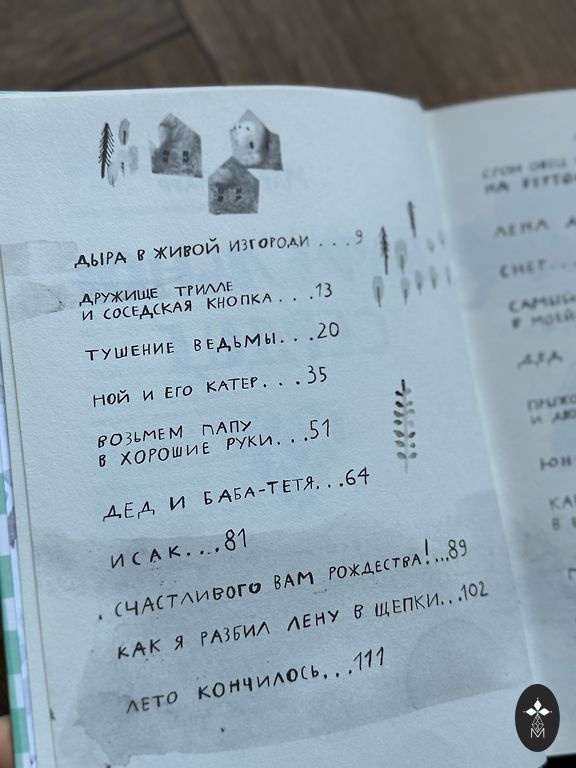 ДЫРА В ЖИВОЙ ИЗГОРОДИ ... 9
ДРУЖИЩЕ ТРИЛЛЕ
И СОСЕДСКАЯ КНОПКА ... 13
ТУШЕНИЕ ВЕДЬМЫ ... 20
НОЙ И ЕГО КАТЕР ... 35
ВОЗЬМЕМ ПАПУ
В ХОРОШИЕ РУКИ ... 51
ДЕД И БАБА-ТЕТЯ ... 64
ИСАК .... 81
СЧАСТЛИВОГО ВАМ РОЖДЕСТВА! ... 89
КАК Я РАЗБИЛ ЛЕНУ В ЩЕПКИ ... 102
ЛЕТО КОНЧИЛОСЬ ... 111
ЛЕНА
СНЕГ ...
ДЕД
М